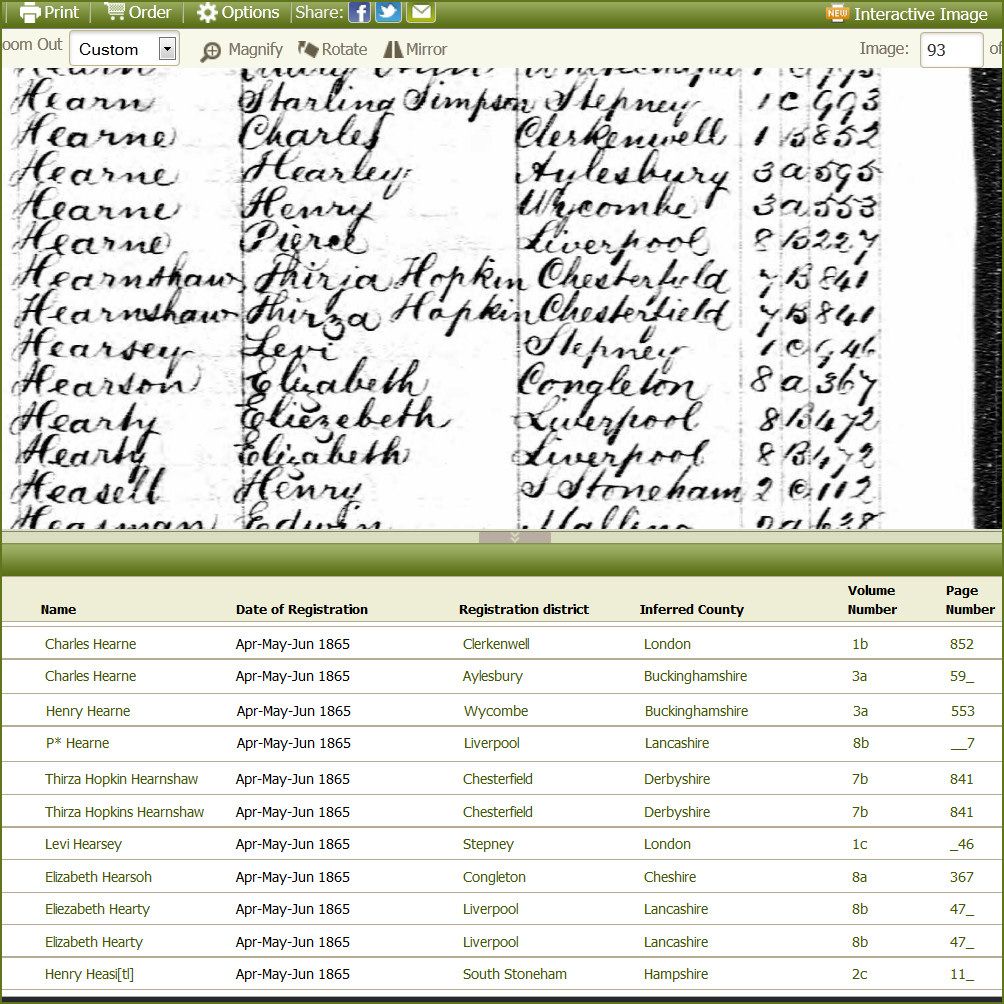 Print Order Options Share: NEW Interactive Image
oom Out Custom Magnify Rotate Mirror Image: 93 of
Hearn Starling Simpson Stepney 1 C 993
Hearne Charles Clerkenwell 1 B 852
Hearne Hearley Aylesbury 3 a 595
Hearne Henry Wycombe 3 a 553
Hearne Pierce Liverpool 8 B 227
Hearnshaw Thirja Hopkin Chesterfield 7 B 841
Hearnshaw Thirza Hopkin Chesterfield 7 B 841
Hearsey Levi Stepney 1 C 46
Hearson Elizabeth Congleton 8 a 367
Hearty Eliezebeth Liverpool 8 B 472
Hearty Elizabeth Liverpool 8 B 472
Heasell Henry S Stoneham 2 C 112
Heasman Edwin Malling 2 a 638
Volume Page
Name Date of Registration Registration district Inferred County Number Number
Charles Hearne Apr-May-Jun 1865 Clerkenwell London 1b 852
Charles Hearne Apr-May-Jun 1865 Aylesbury Buckinghamshire 3a 59_
Henry Hearne Apr-May-Jun 1865 Wycombe Buckinghamshire 3a 553
P* Hearne Apr-May-Jun 1865 Liverpool Lancashire 8b __7
Thirza Hopkin Hearnshaw Apr-May-Jun 1865 Chesterfield Derbyshire 7b 841
Thirza Hopkins Hearnshaw Apr-May-Jun 1865 Chesterfield Derbyshire 7b 841
Levi Hearsey Apr-May-Jun 1865 Stepney London 1c _46
Elizabeth Hearsoh Apr-May-Jun 1865 Congleton Cheshire 8a 367
Eliezabeth Hearty Apr-May-Jun 1865 Liverpool Lancashire 8b 47_
Elizabeth Hearty Apr-May-Jun 1865 Liverpool Lancashire 8b 47_
Henry Heasi[tl] Apr-May-Jun 1865 South Stoneham Hampshire 2c 11_